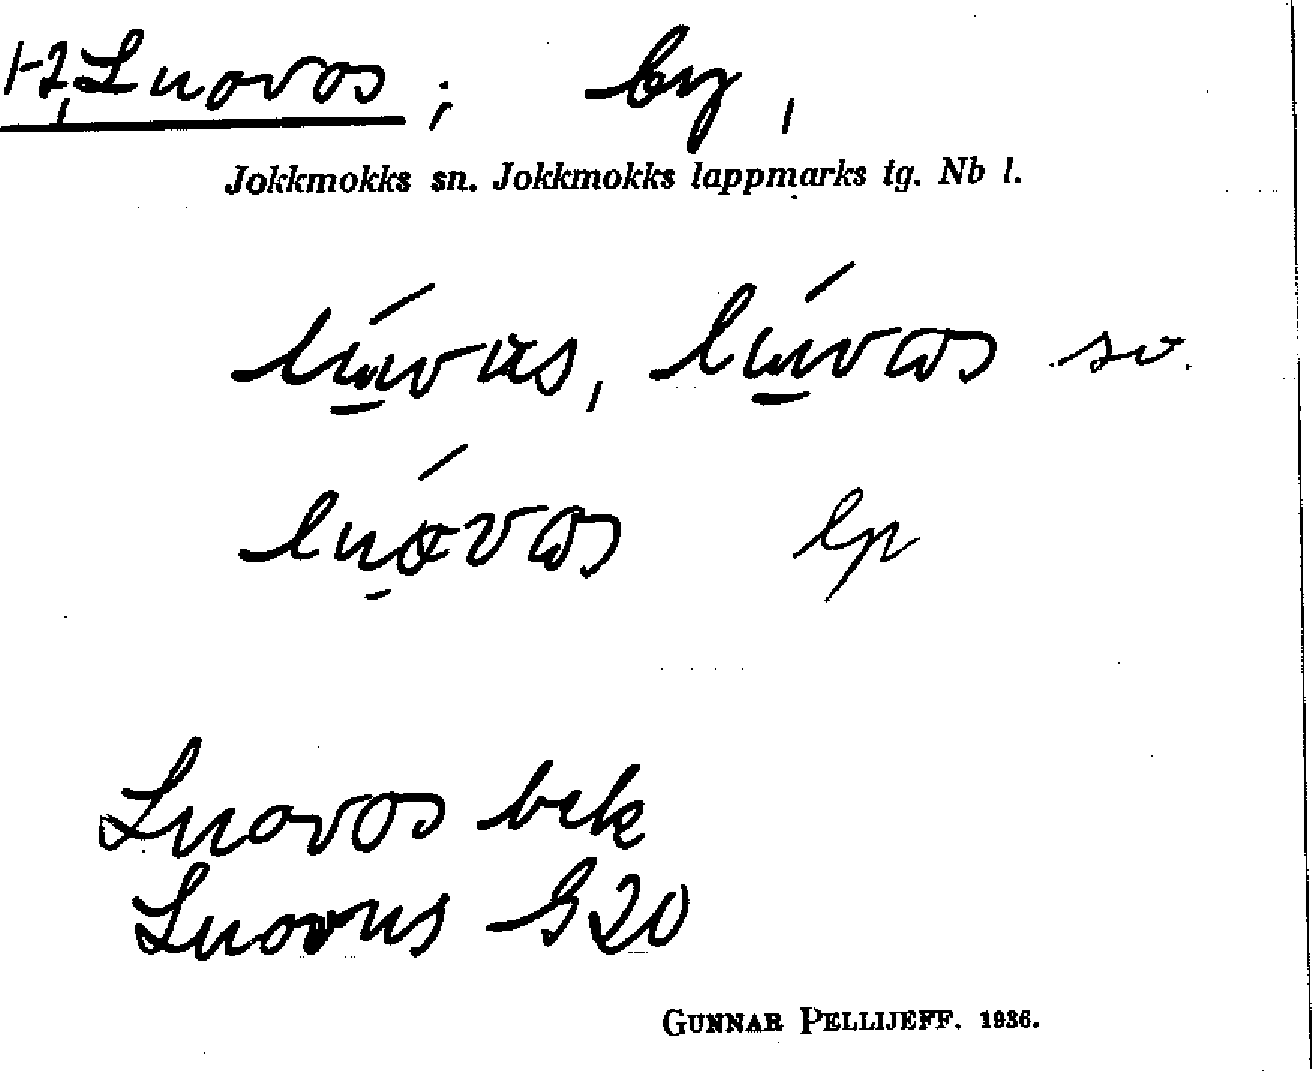 1-2, Luovos ; by ,
Jokkmokks sn. Jokkmokks lappmarks tg. Nb l.
lú̱vus, lú̱vas sv.
luó̱vas lp
Luovos bek
Luovus G20
GUNNAR PELLIJEFF. 1936.